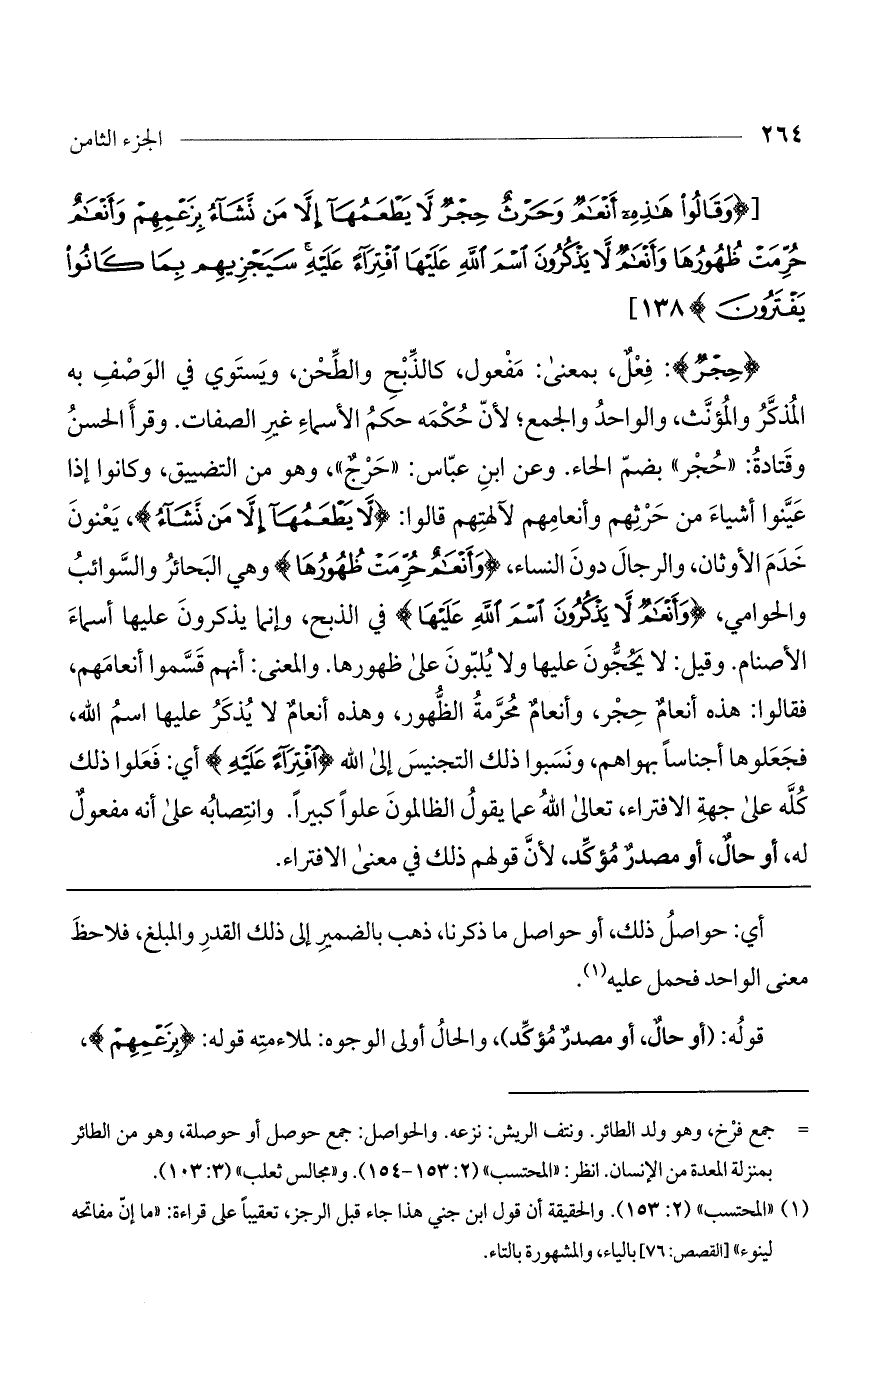 ٢٦٤ الجزء الثامن
[﴿وَقَالُوا۟ هَٰذِهِۦٓ أَنْعَٰمٌ وَحَرْثٌ حِجْرٌ لَّا يَطْعَمُهَآ إِلَّا مَن نَّشَآءُ بِزَعْمِهِمْ وَأَنْعَٰمٌ
حُرِّمَتْ ظُهُورُهَا وَأَنْعَٰمٌ لَّا يَذْكُرُونَ ٱسْمَ ٱللَّهِ عَلَيْهَا ٱفْتِرَآءً عَلَيْهِ ۚ سَيَجْزِيهِم بِمَا كَانُوا۟
يَفْتَرُونَ﴾ ١٣٨]
﴿حِجْرٌ﴾: فِعْلٌ، بمعنىٰ: مَفْعول، كالذِّبْحِ والطِّحْن، ويَستَوي في الوَصْفِ به
المُذكَّرُ والمُؤنَّث، والواحدُ والجمع؛ لأنّ حُكْمَه حكمُ الأسماءِ غيرِ الصفات. وقرأَ الحسنُ
وقَتادةُ: «حُجْر» بضمّ الحاء. وعن ابنِ عبّاس: «حَرْجٌ»، وهو من التضييق، وكانوا إذا
عَيَّنوا أشياءَ من حَرْثِهم وأنعامِهم لآلهتِهم قالوا: ﴿لَّا يَطْعَمُهَآ إِلَّا مَن نَّشَآءُ﴾، يَعْنونَ
خَدَمَ الأوثان، والرجالَ دونَ النساء، ﴿وَأَنْعَٰمٌ حُرِّمَتْ ظُهُورُهَا﴾ وهي البَحائرُ والسَّوائبُ
والحوامي، ﴿وَأَنْعَٰمٌ لَّا يَذْكُرُونَ ٱسْمَ ٱللَّهِ عَلَيْهَا﴾ في الذبح، وإنما يذكرونَ عليها أسماءَ
الأصنام. وقيل: لا يَحُجُّونَ عليها ولا يُلبّونَ علىٰ ظهورها. والمعنى: أنهم قَسَّموا أنعامَهم،
فقالوا: هذه أنعامٌ حِجْر، وأنعامٌ مُحُرَّمةُ الظُّهور، وهذه أنعامٌ لا يُذكَرُ عليها اسمُ الله،
فجَعَلوها أجناساً بهواهم، ونَسَبوا ذلك التجنيسَ إلىٰ الله ﴿ٱفْتِرَآءً عَلَيْهِ﴾ أي: فَعَلوا ذلك
كُلَّه علىٰ جهةِ الافتراء، تعالىٰ اللهُ عما يقولُ الظالمونَ علواً كبيراً. وانتِصابُه علىٰ أنه مفعولٌ
له، أو حالٌ، أو مصدرٌ مُؤكِّد، لأنَّ قولهم ذلك في معنىٰ الافتراء.
أي: حواصلُ ذلك، أو حواصل ما ذكرنا، ذهب بالضميرِ إلى ذلك القدرِ والمبلغ، فلاحظَ
معنى الواحد فحمل عليه(١).
قولُه: (أو حالٌ، أو مصدرٌ مُؤكِّد)، والحالُ أولى الوجوه: لملاءمتِه قوله: ﴿بِزَعْمِهِمْ﴾،
= جمع فرْخ، وهو ولد الطائر. ونتف الريش: نزعه. والحواصل: جمع حوصل أو حوصلة، وهو من الطائر
بمنزلة المعدة من الإنسان. انظر: «المحتسب» (٢: ١٥٣-١٥٤). و«مجالس ثعلب» (٣: ١٠٣).
(١) «المحتسب» (٢: ١٥٣). والحقيقة أن قول ابن جني هذا جاء قبل الرجز، تعقيباً على قراءة: «ما إنّ مفاتحه
لينوء» [القصص: ٧٦] بالياء، والمشهورة بالتاء.